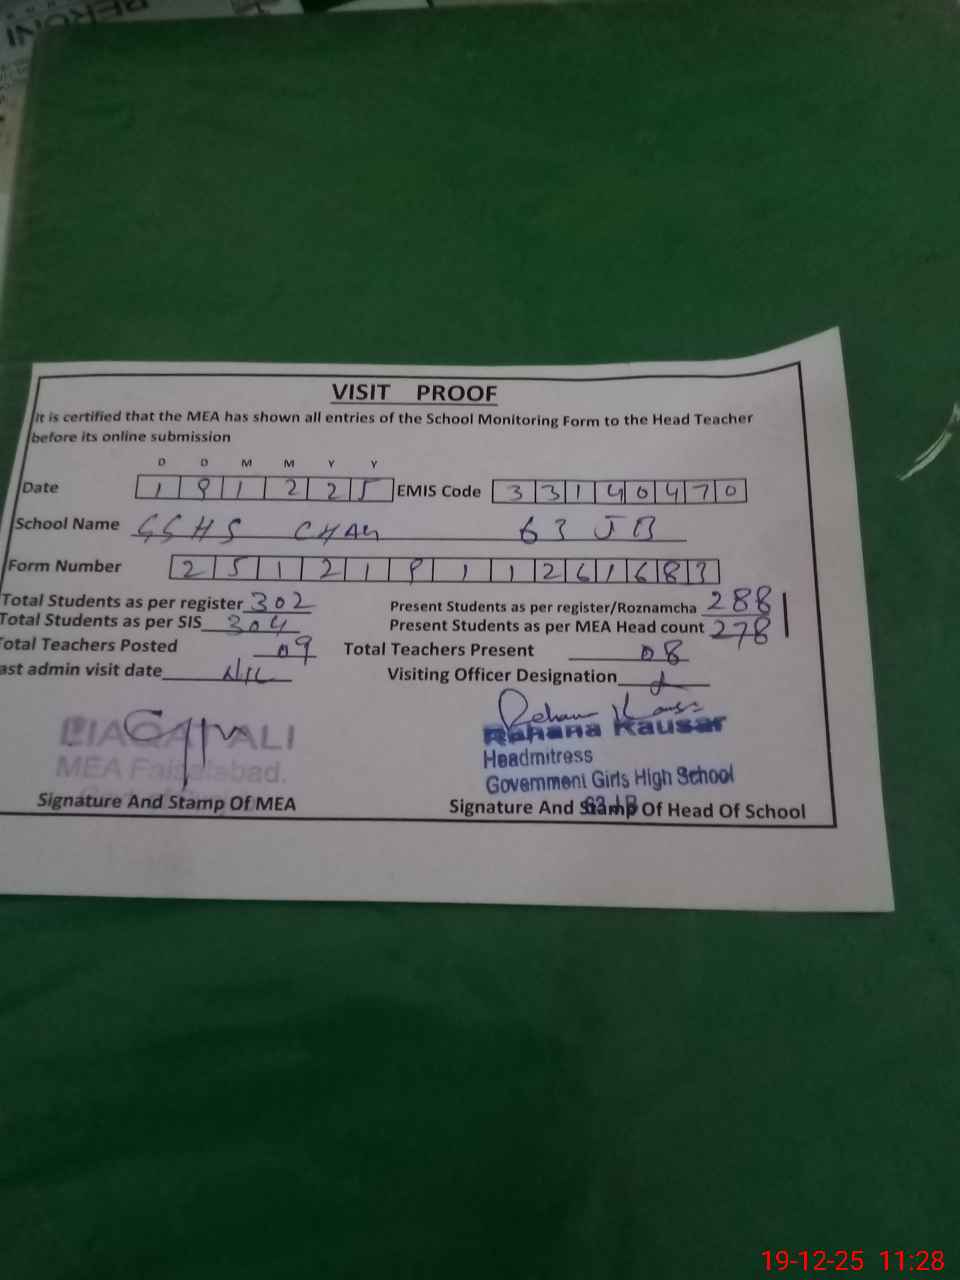 VISIT PROOF
It is certified that the MEA has shown all entries of the School Monitoring Form to the Head Teacher
before its online submission
D D M M Y Y
Date 1 9 1 2 2 5 EMIS Code 3 3 1 4 0 4 7 0
School Name GGHS CHAK 63 JB
Form Number 2 5 1 2 1 9 1 1 2 6 1 6 8 3
Total Students as per register 302 Present Students as per register/Roznamcha 288
Total Students as per SIS 304 Present Students as per MEA Head count 278
Total Teachers Posted 09 Total Teachers Present 08
ast admin visit date Nil Visiting Officer Designation
Rehana Kausar
LIAQAT ALI Rehana Kausar
MEA Faisalabad. Headmitress
Government Girls High School
63 JB
Signature And Stamp Of MEA Signature And Stamp Of Head Of School
19-12-25 11:28